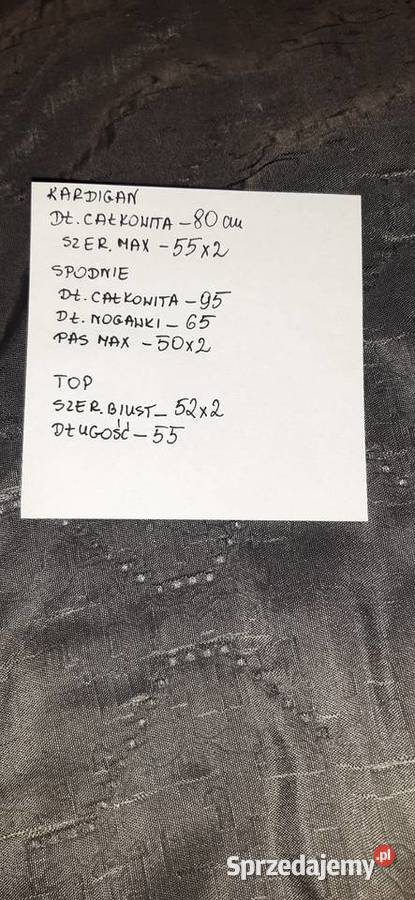 KARDIGAN
DŁ. CAŁKOWITA - 80 cm
SZER. MAX - 55x2
SPODNIE
DŁ. CAŁKOWITA - 95
DŁ. NOGAWKI - 65
PAS MAX - 50x2
TOP
SZER. BIUST - 52x2
DŁUGOŚĆ - 55
Sprzedajemy.pl